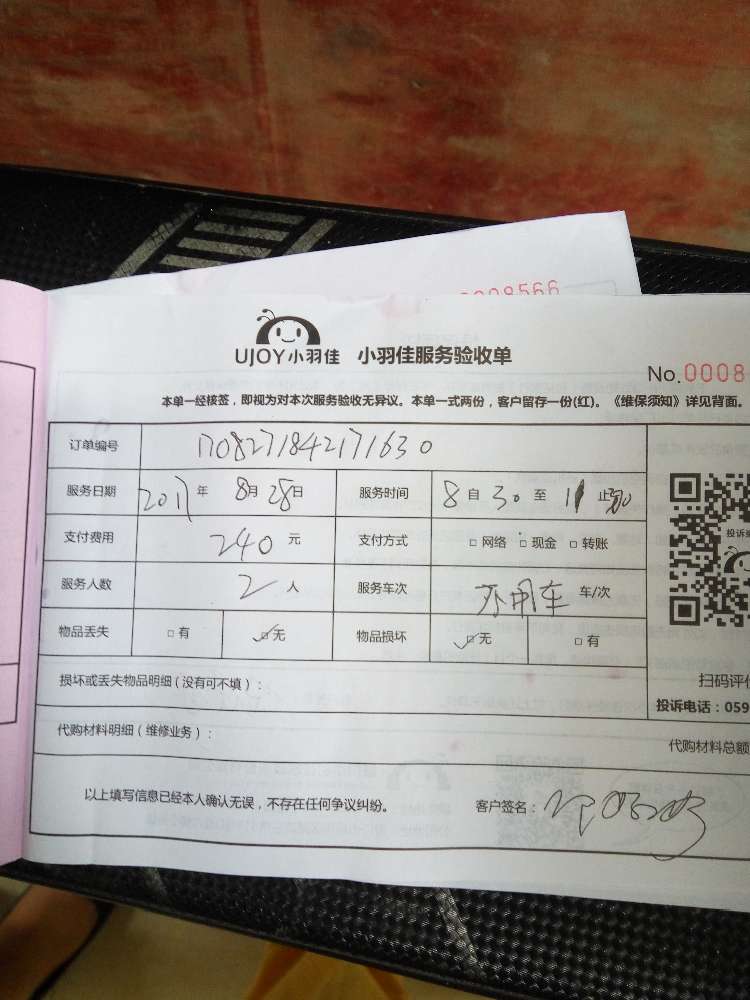 0008566
UJOY小羽佳 小羽佳服务验收单
No.0008
本单一经核签，即视为对本次服务验收无异议。本单一式两份，客户留存一份(红)。《维保须知》详见背面。
订单编号 1708271842171630
服务日期 2017年 8月 28日 服务时间 8自30至11止30
支付费用 240元 支付方式 □网络 □现金 □转账
服务人数 2人 服务车次 不用车 车/次
物品丢失 □有 □无 物品损坏 □无 □有
损坏或丢失物品明细(没有可不填)：
扫码评价
投诉电话：059
代购材料明细(维修业务)：
代购材料总额
以上填写信息已经本人确认无误，不存在任何争议纠纷。 客户签名：